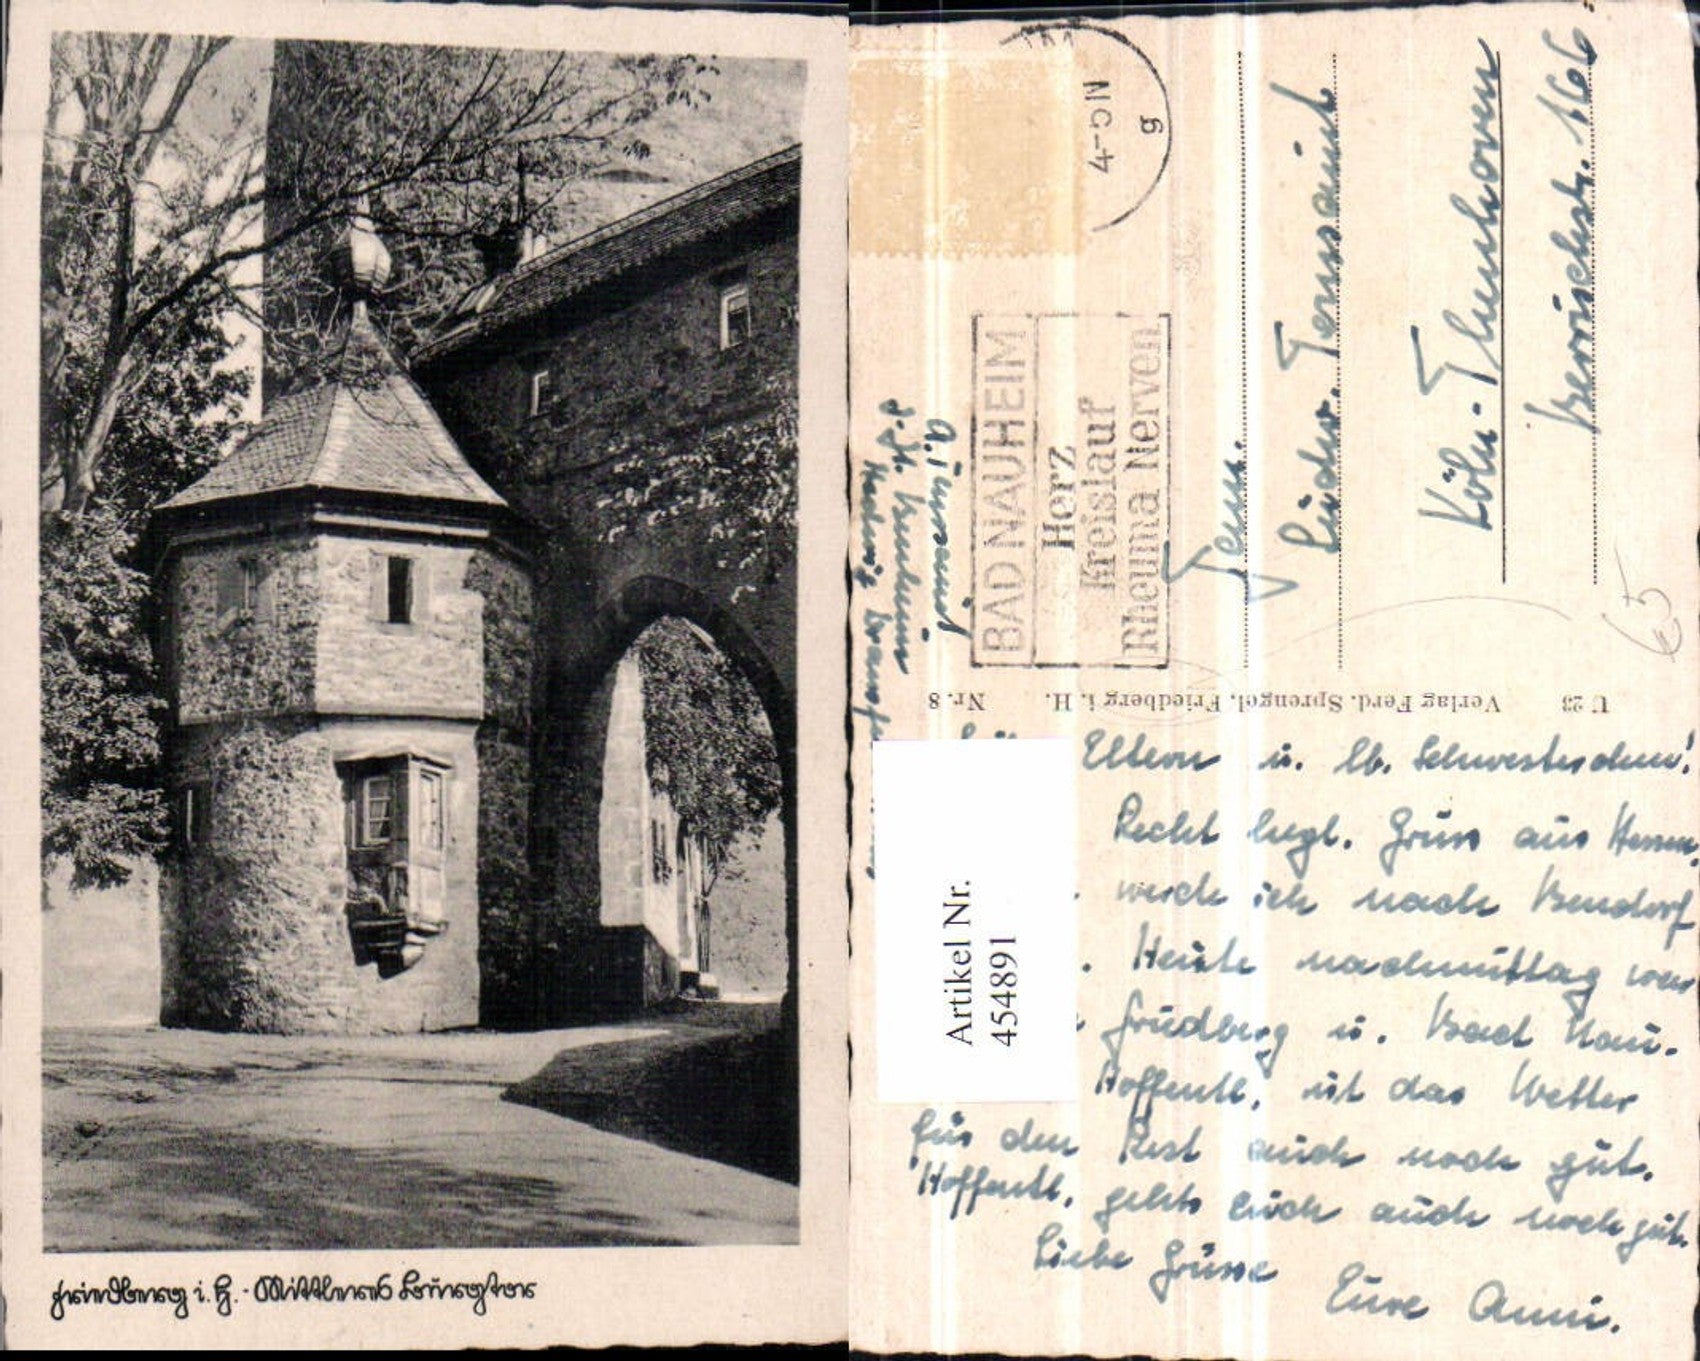 Friedberg i. H. - Mittleres Burgtor
4-5N
g
BAD NAUHEIM
Herz
Kreislauf
Rheuma Nerven
Fam.
Ludw. Tenssaint
Köln-Flenhoven
166
€5
Nr. 8 Verlag Ferd. Sprengel, Friedberg i. H. U 23
Artikel Nr.
454891
Eltern u. lb. Schwesterchen!
Recht herzl. Grüss aus Hessen.
werde ich nach Bendorf
Heute nachmittag war
Friedberg u. Bad Nau.
Hoffentl. ist das Wetter
für den Rest auch noch gut.
Hoffentl. gehts Euch auch noch gut.
Liebe Grüsse
Eure Anni.